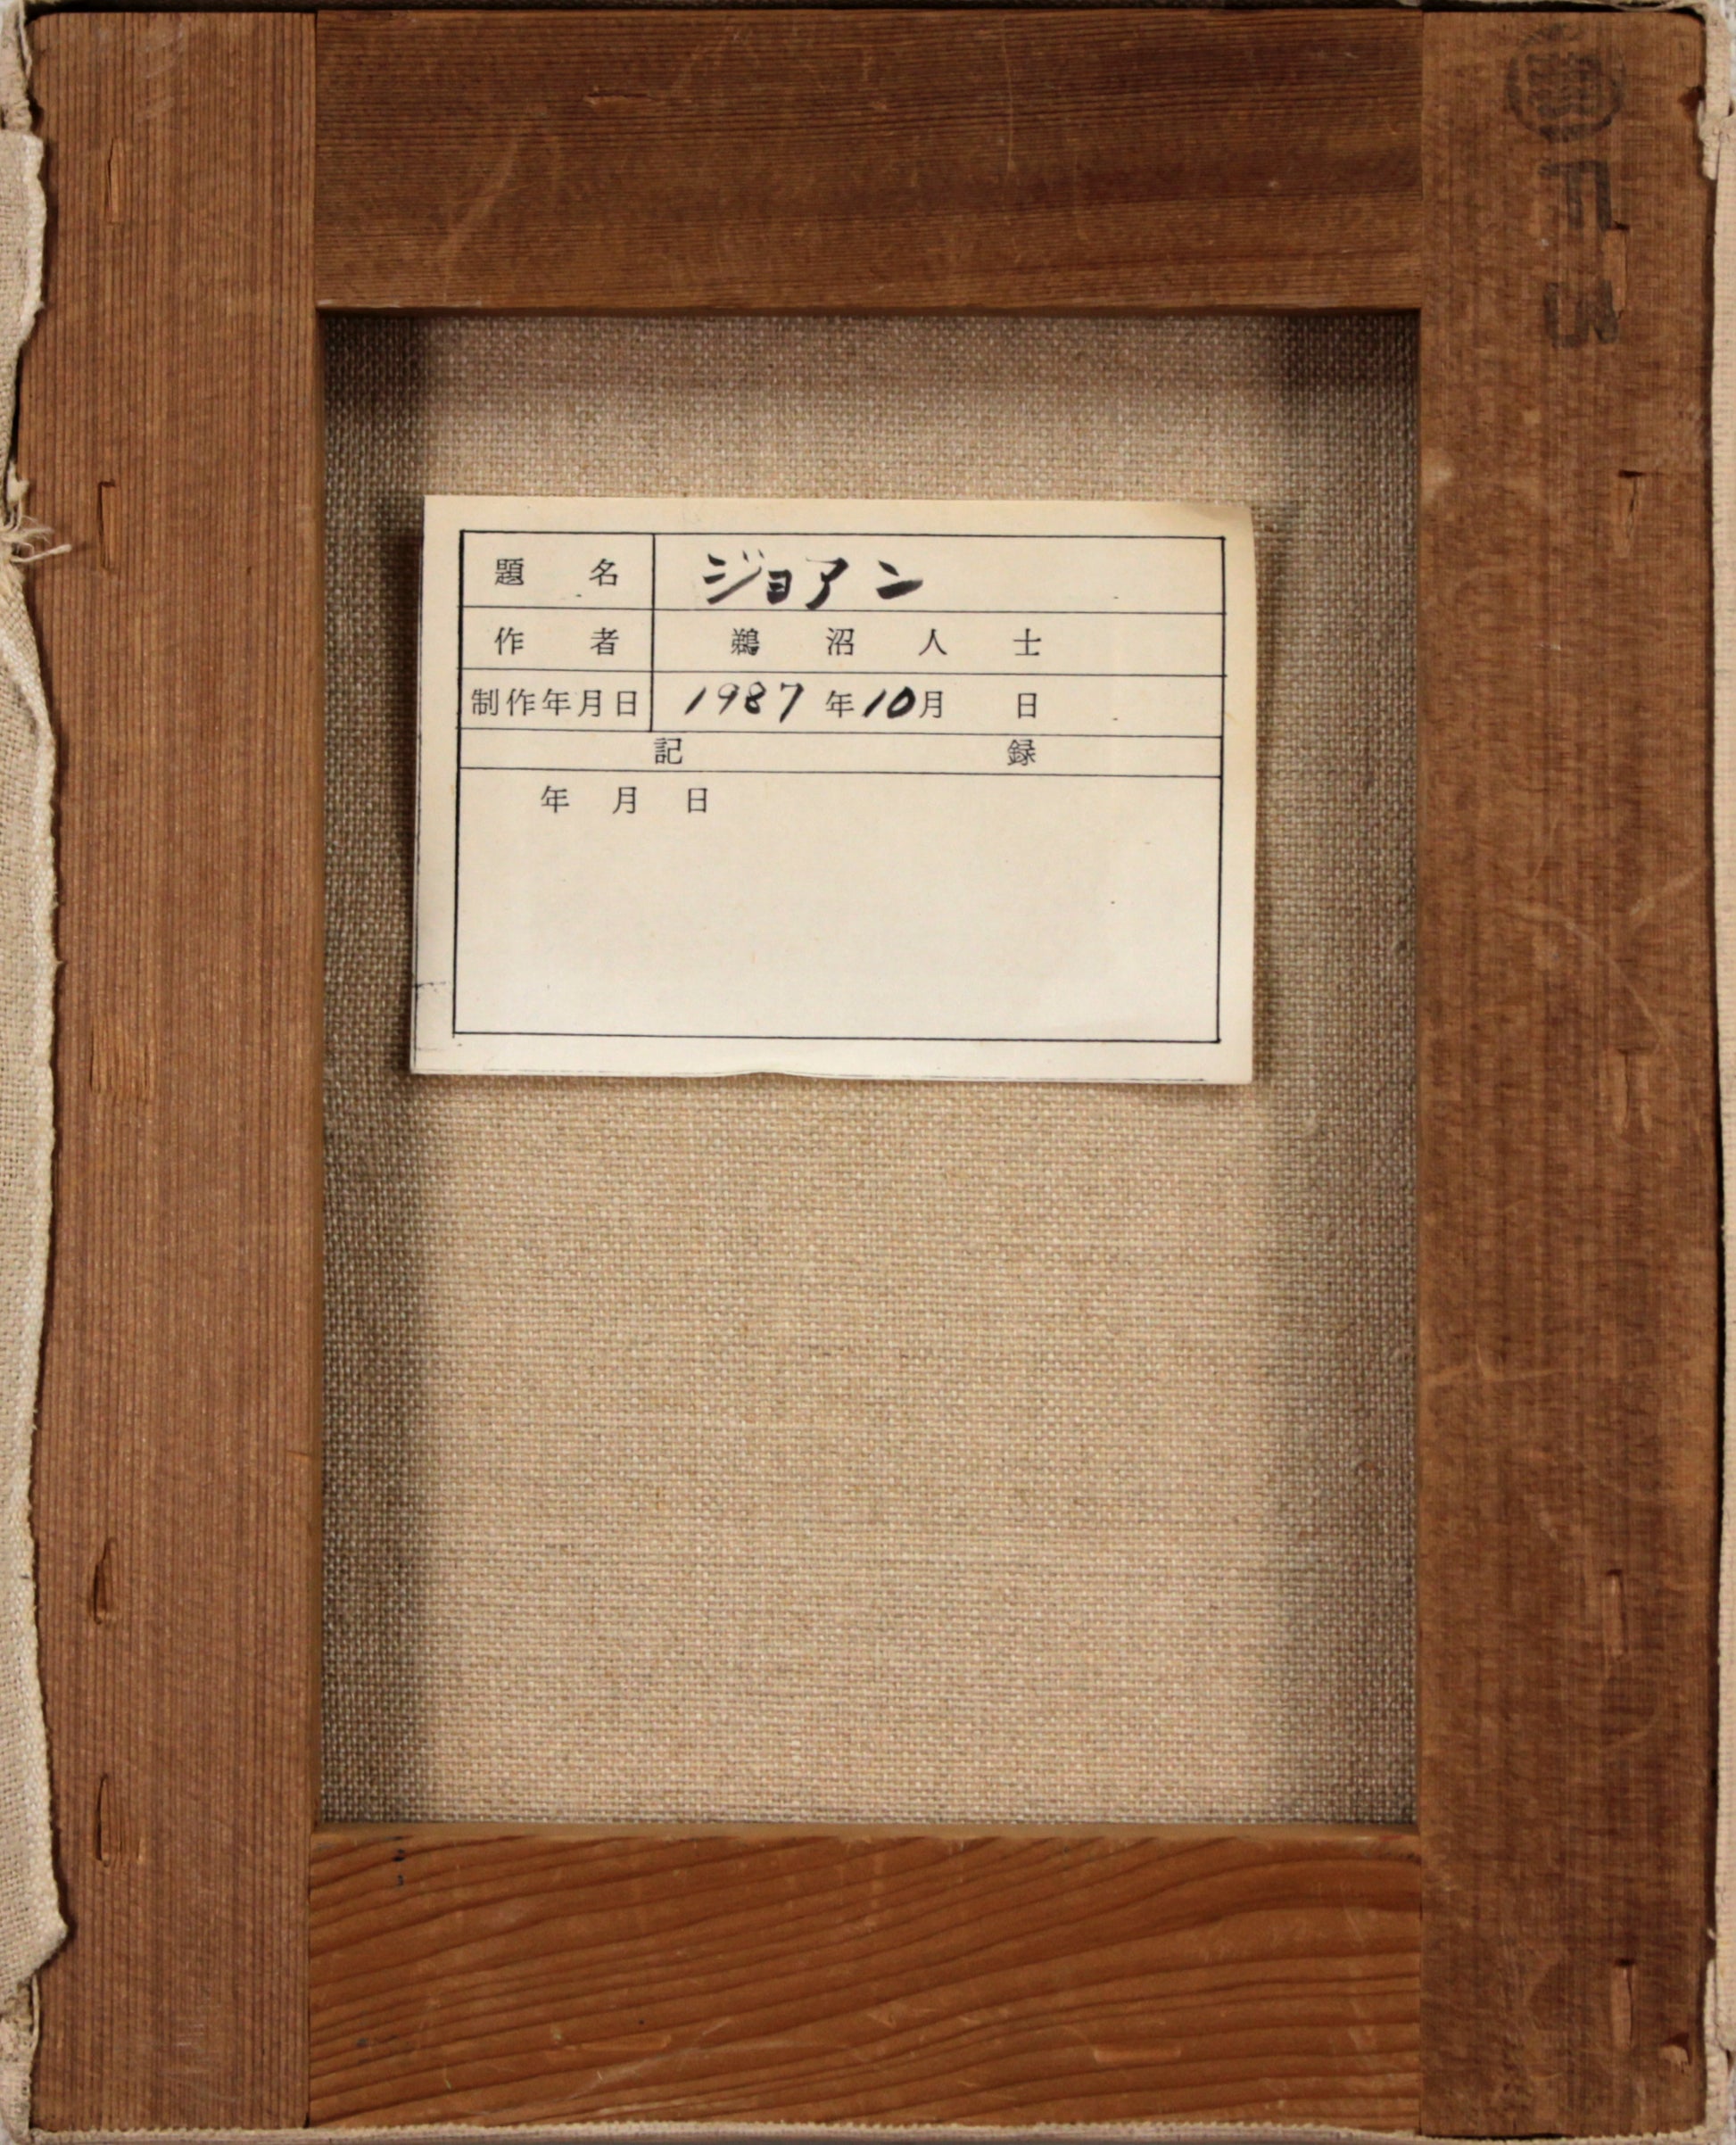 題名 ジョアン
作者 鵜沼人士
制作年月日 1987年10月 日
記録
年 月 日
F3